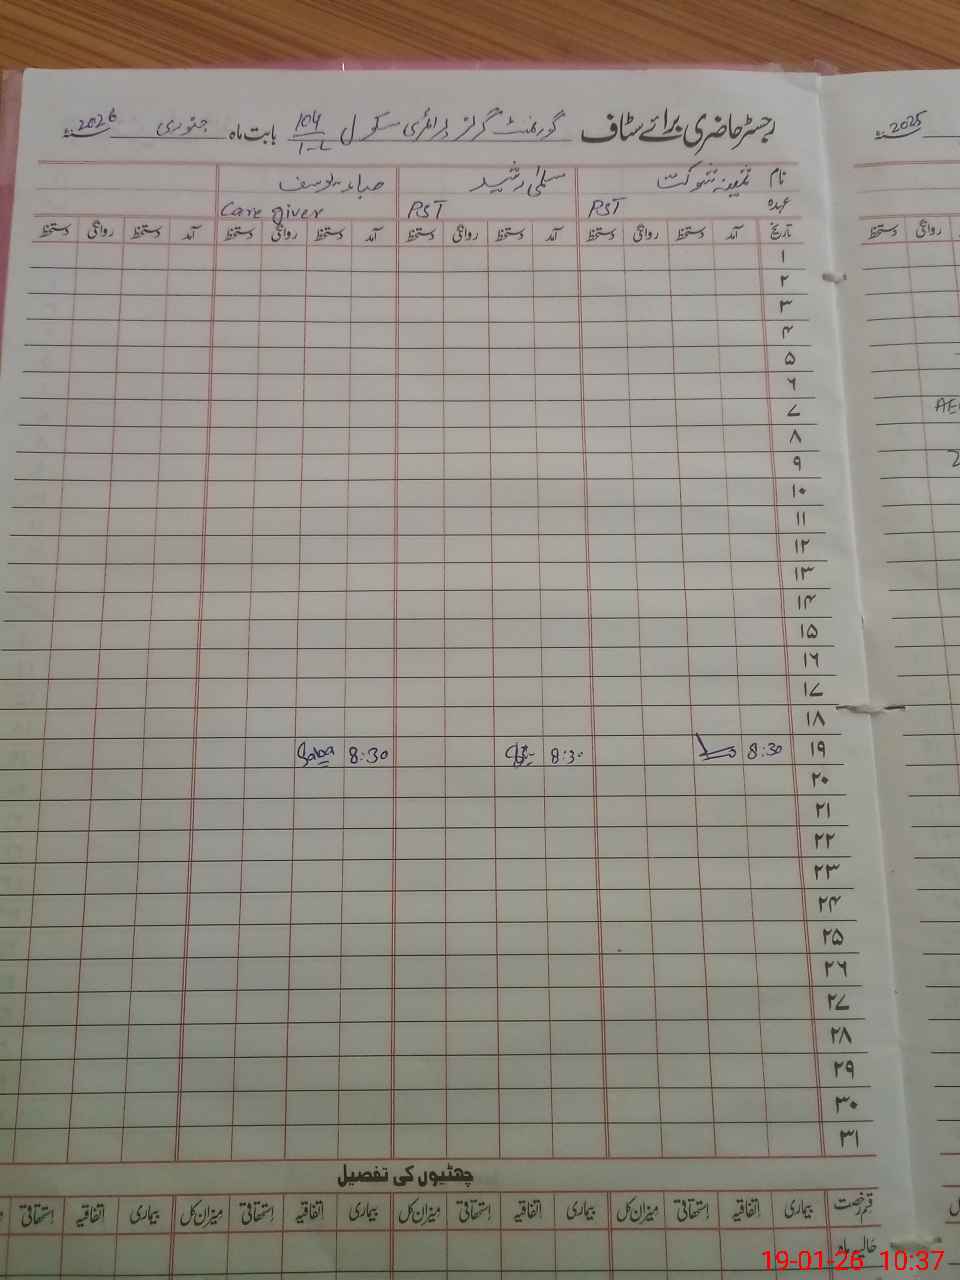 رجسٹر حاضری برائے سٹاف گورنمنٹ گرلز پرائمری سکول 104/1-L بابت ماہ جنوری 2026ء
نام ثمینہ شوکت سلمیٰ رشید صباء یوسف
عہدہ PST PST Care giver
تاریخ آمد دستخط روانگی دستخط آمد دستخط روانگی دستخط آمد دستخط روانگی دستخط آمد دستخط روانگی دستخط
۱
۲
۳
۴
۵
۶
۷
۸
۹
۱۰
۱۱
۱۲
۱۳
۱۴
۱۵
۱۶
۱۷
۱۸
۱۹ 8:30 8:30 8:30 Saba
۲۰
۲۱
۲۲
۲۳
۲۴
۲۵
۲۶
۲۷
۲۸
۲۹
۳۰
۳۱
چھٹیوں کی تفصیل
قسم رخصت بیماری اتفاقیہ استحقاقی میزان کل بیماری اتفاقیہ استحقاقی میزان کل بیماری اتفاقیہ استحقاقی میزان کل بیماری اتفاقیہ استحقاقی
حالیہ ماہ
2025ء
روانگی دستخط
19-01-26 10:37